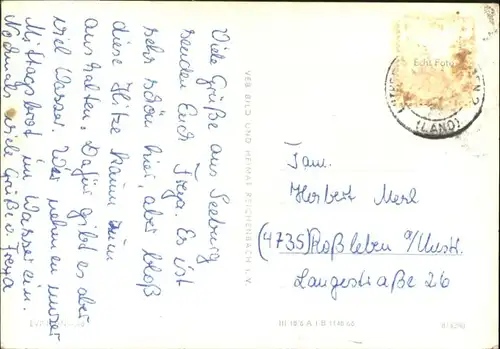 Viele Grüße aus Seeburg
senden Euch Freya. Es ist
sehr schön hier, aber bloß
diese Hitze kaum zum
aushalten. Dafür gibt es aber
viel Wasser. Wir nehmen unser
Mittagsbrot im Wasser ein.
Nochmals viele Grüße v. Freya
VEB BILD UND HEIMAT REICHENBACH I. V.
Echt Foto
(LAND)
Fam.
Herbert Merl
(4735) Roßleben a/Unstr.
Langestraße 26